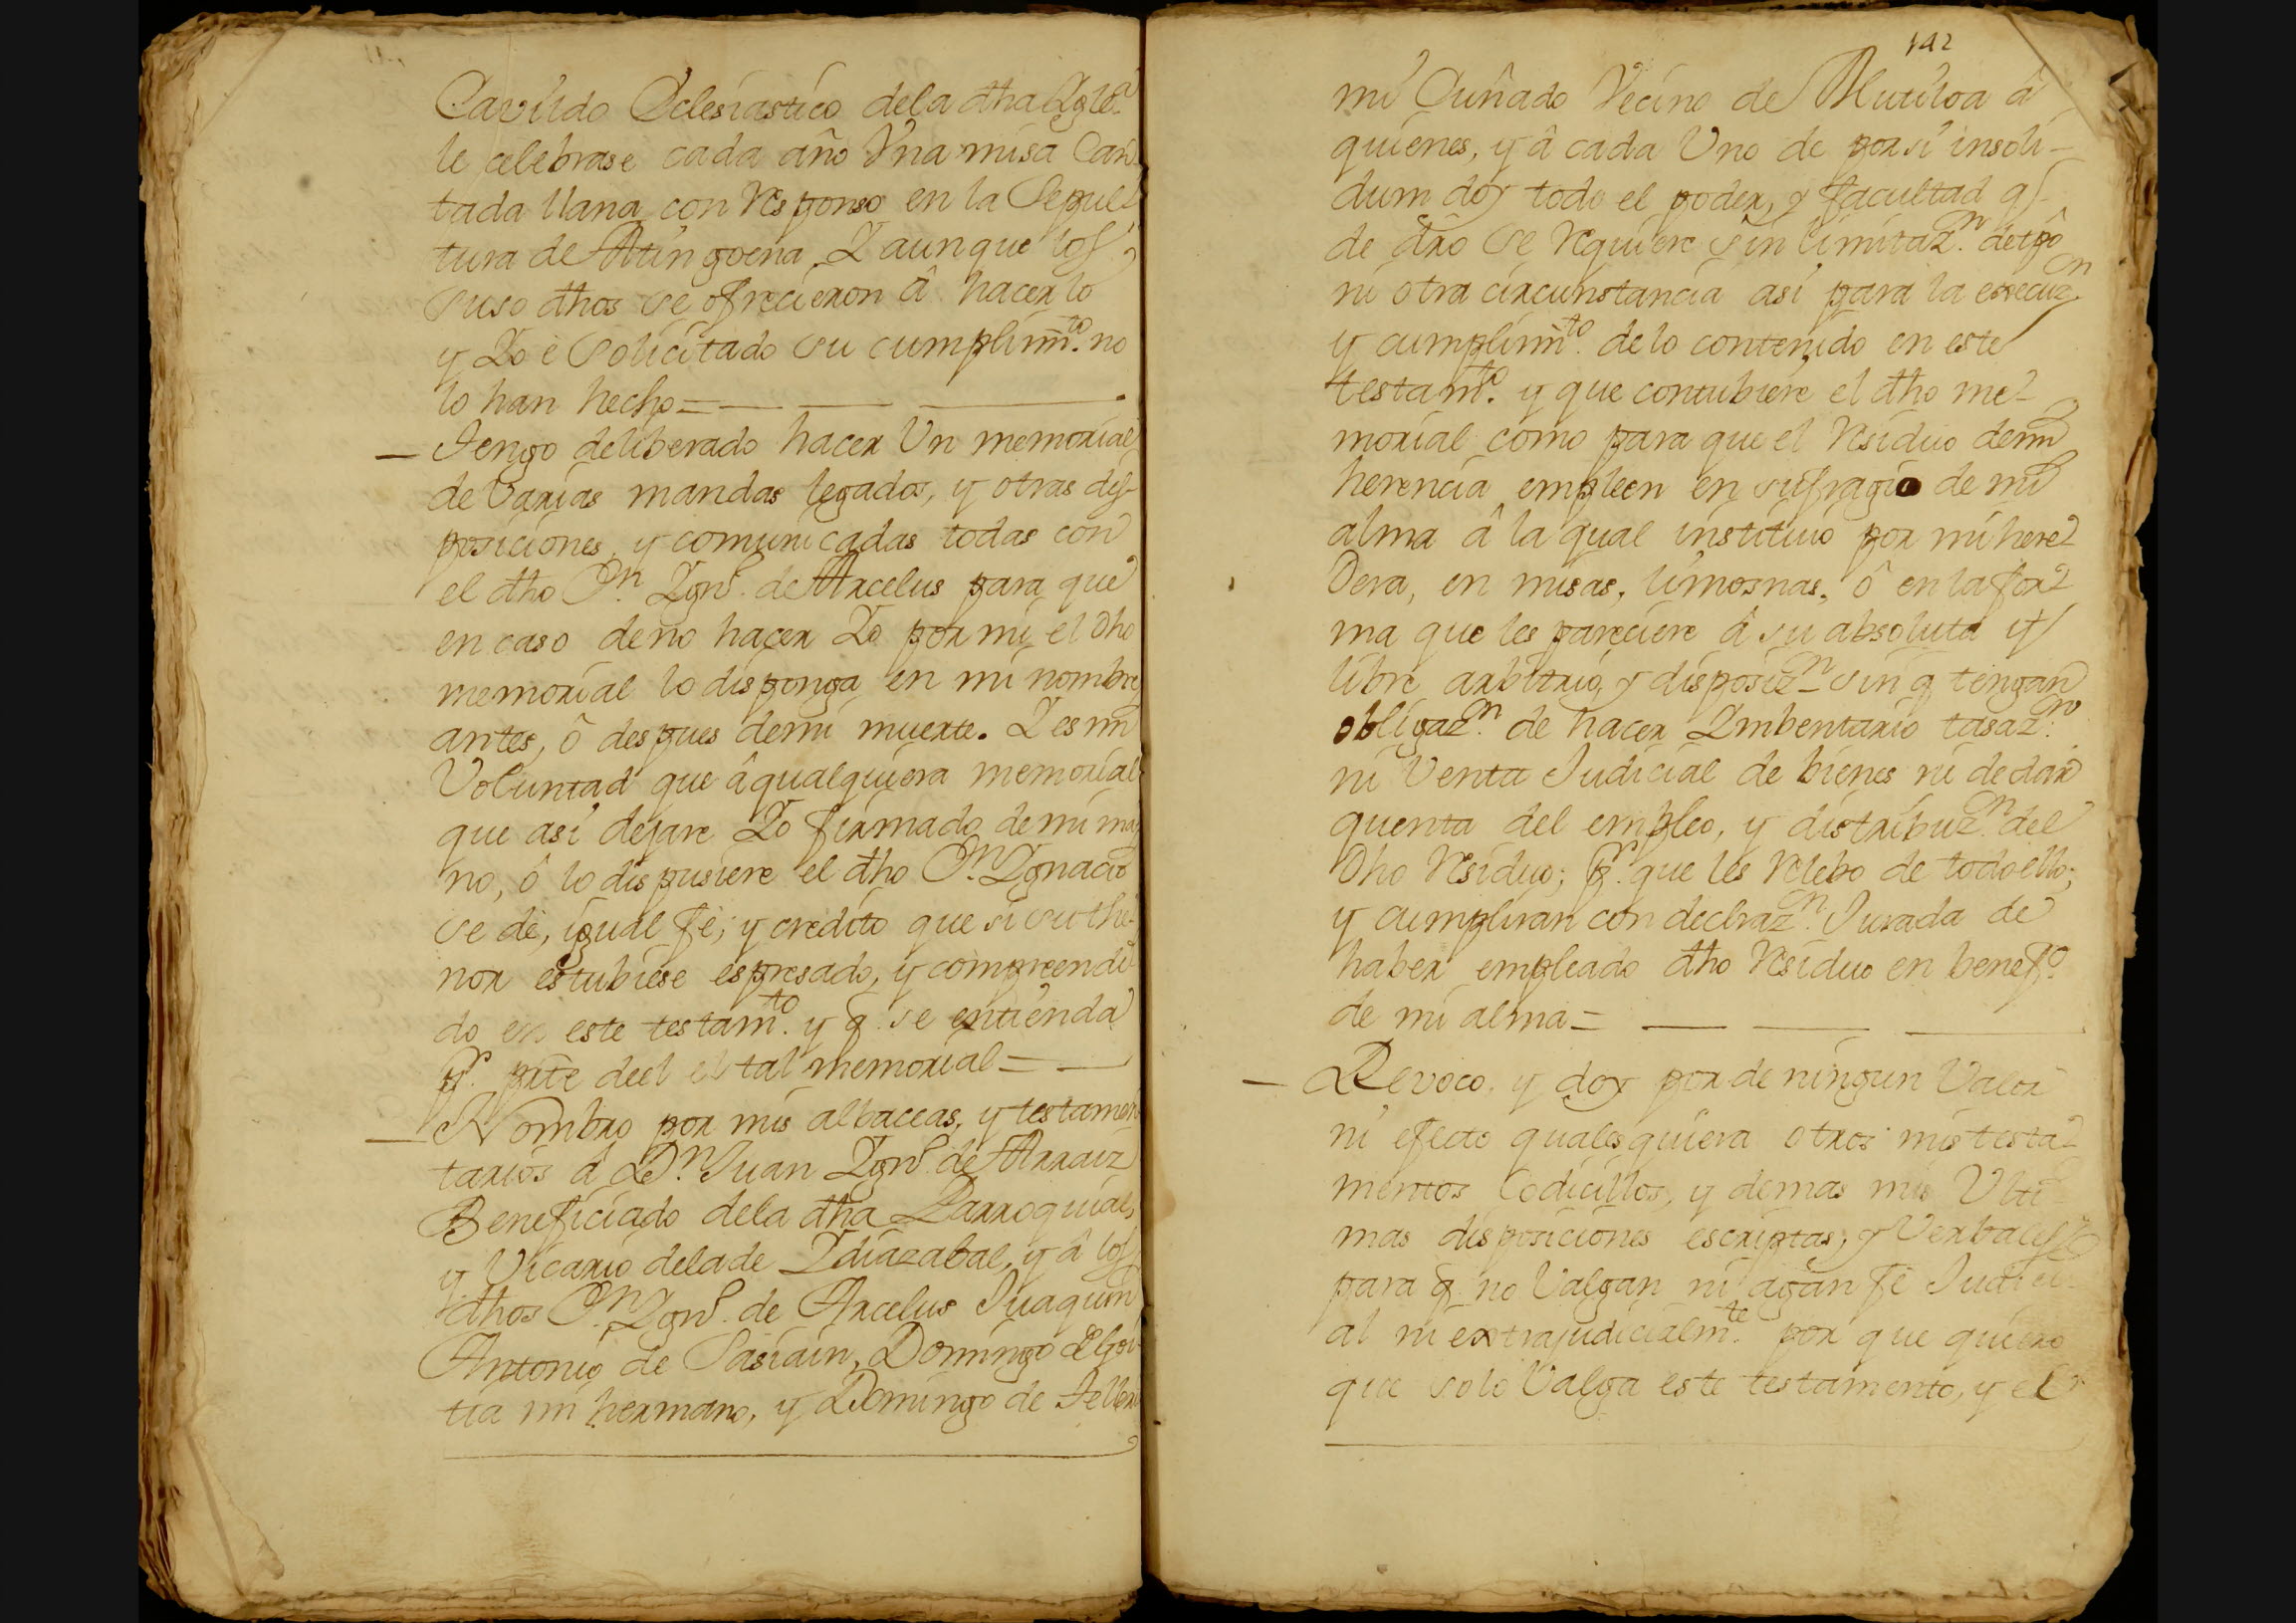 Cavildo Eclesiastico dela dha Iglã
le celebrase cada año Vna misa Can
tada llana con Responso en la Sepul
tura de Atin goena, Y aunque los
suso dhos se ofrecieron â hacerlo
y Yo è solicitado su cumplimto. no
lo han hecho=
Tengo deliberado hacer Vn memorial
de Varias mandas legados, y otras dis-
posiciones, y comunicadas todas con
el dho Dn. Ignº. de Arcelus para que
en caso de no hacer Yo por mi el dho
memorial lo disponga en mi nombre
antes, ô despues demi muerte. Y es mi
Voluntad que â qualquiera memorial
que asi dejare Yo firmado de mi ma
no, ô lo dispusiere el dho Dn. Ignacio
se dè, igual fè, y credito que si su the-
nor estubiese espresado, y comprendi
do en este testamto. y q. se entienda
pr. pãte deel el tal memorial=
Nombro por mis albaceas, y testamen
tarios â Dn. Juan Ignº. de Arraiz
Beneficiado dela dha Parroquial,
y Vicario delade Idiazabal, y â los
dhos Dn. Ignº. de Arcelus Juaquin
Antonio de Sasiain, Domingo Elgoi
tia mi hermano, y Domingo de Telleri
142
mi Cuñado Vecino de Mutiloa â
quienes, y â cada Uno de porsi insoli-
dum doy todo el poder, y facultad q
de dro se Requiere sin limitazn. detpô
ni otra circunstancia asi para la execuzn
y cumplimto. de lo contenido en este
testamto. y que contubiere el dho me-
morial como para que el Residuo demi
herencia empleen en sufragio de mi
alma â la qual instituio por mi here-
dera, en misas, limosnas, ô en la for-
ma que les pareciere â su absoluta y
libre arbitrio, y disposizn sin q tengan
obligazn. de hacer Imbentario tasazn.
ni Venta Judicial de bienes ni de dar
quenta del empleo, y distribuzn. del
dho Residuo; pr. que les Relebo de todo ello;
y cumpliran con declrazn. Jurada de
haber empleado dho Residuo en benefº.
de mi alma=
Revoco, y doy por de ningun Valor
ni efecto qualesquiera otros mis testa-
mentos Codicillos, y demas mis Ulti
mas disposiciones escriptas, y Verbales
para q. no Valgan ni agan fè Judici-
al ni extrajudicialmte. por que quiero
que solo Valga este testamento, y el